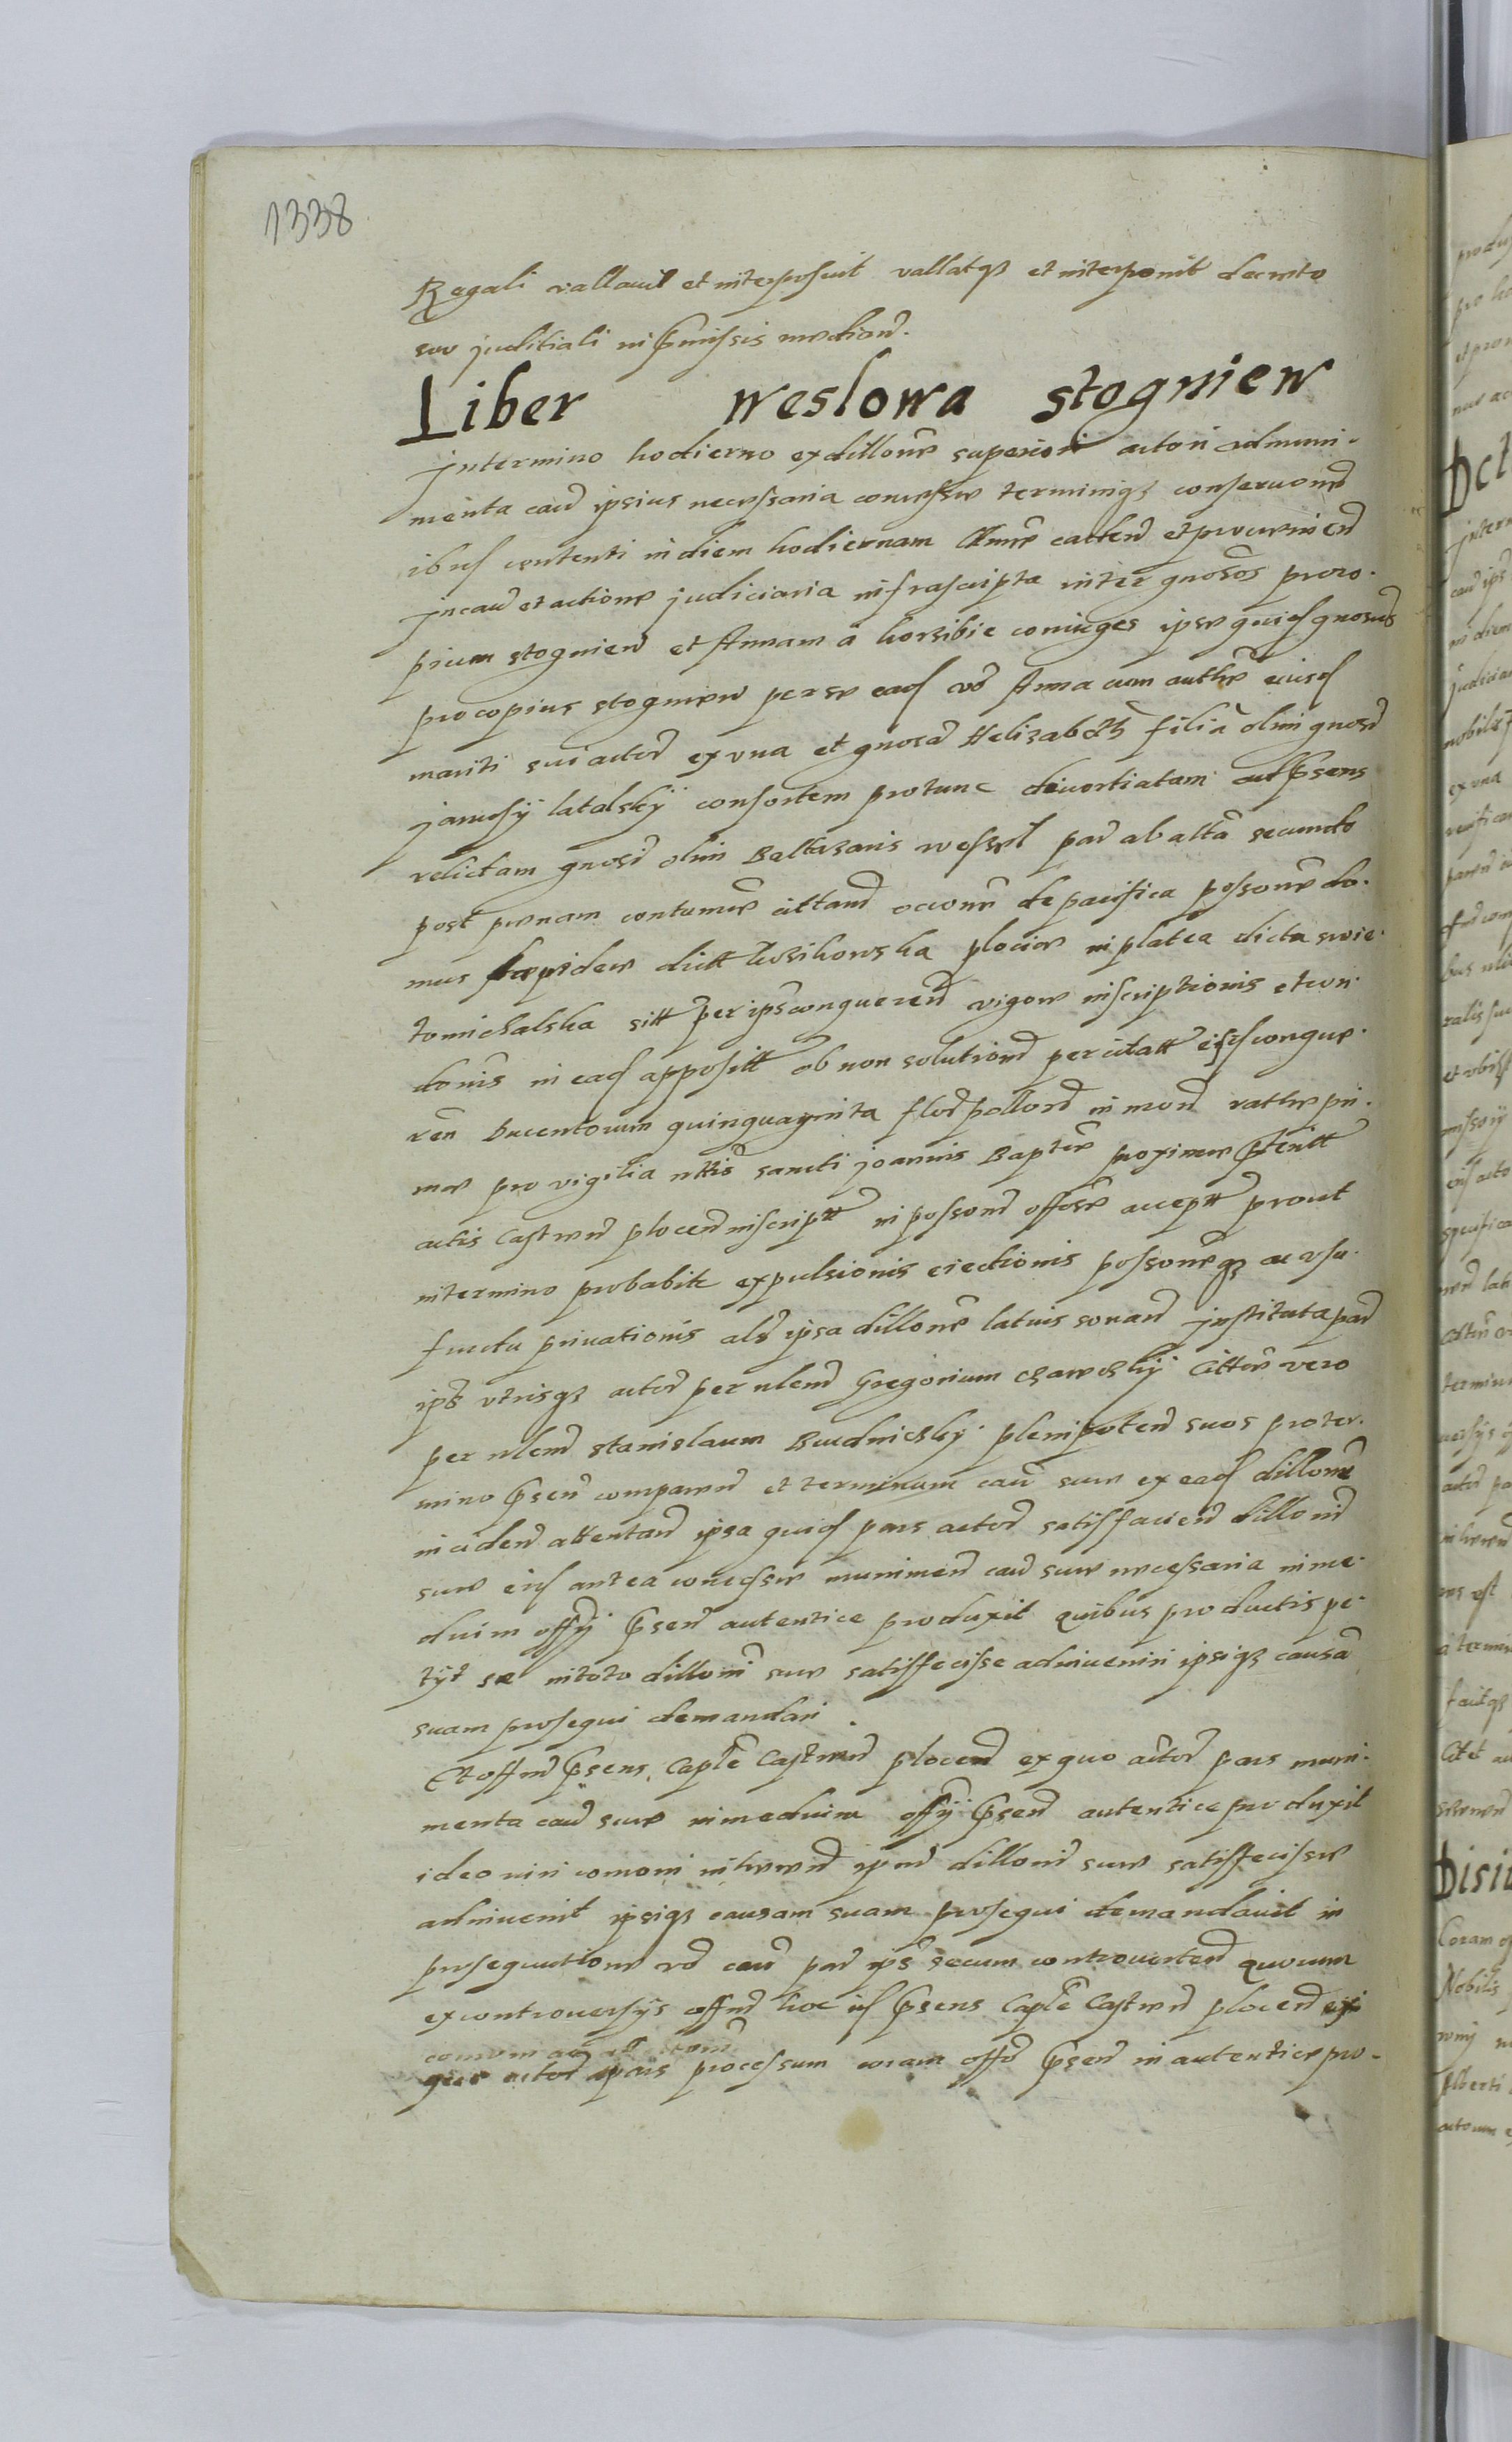 1338
Regali vallavit et interposuit vallatqз et interponit decreto
suo juditiali in p̃missis mediand.
Liber weslowa stogniew
Jn termino hodierno ex dillone superiori actori ad muni-
menta cau ipsius necessaria concessæ terminiqз conservone
ibus contenti in diem hodiernam
Jn cau et actione judiciaria infrascripta inter gnosos proco-
pium stogniew et Annam a korzibie coniuges ipse quid gnosus
procopius stogniew per se ead vō Anna cum authe eiusd
mariti sui actor ex una et gnosa Helizabeth filia olim gnosi
janussÿ latalskÿ consortem protunc divortiatam aut p̃sens
relictam gnosi olim Baltazaris wessel par ab alta secundo
post pœnam contumie cittand occone de pacifica possone do-
mus lapidew dictt kozikowska plociæ in platea dicta swie-
tomichalska sitt per ips conqueren vigore inscriptionis et con-
donis in ead appositt ob non solutione per citatt eisd conque-
ren Ducentorum quinquaginta flor pollor in mon ratheqз pri-
mæ pro vigilia nttis sancti joannis Baptæ proximæ p̃teritt
actis Castren plocen inscriptt in posson offose acceptt prout
in termino probabit expulsionis eiectionis possoneqз ac usu-
fructu privationis alr ipsa dillone latius sonan jnstituta par
ips utrisqз actor per nlem Gregorium Citte vero
per nlem stanislaum Budnickÿ plenipoten suos pro ter-
mino p̃sen comparen et terminum cau suæ ex ead dillone
inciden attentan ipsa quid pars actor satisfacien dilloni
suæ eid antea concessæ munimen cau suæ necessaria in me-
dium offÿ p̃sen autentice produxit Quibus productis pe-
tÿt se in toto dilloni suæ satisfecisse adinveniri ipsiqз causã
suam prosequi demandari
Et offm p̃sens Capl̃e Castren plocen ex quo actor pars muni-
menta cau suæ in medium offÿ p̃sen autentice produxit
ideo iuri comoni inheren ipm dilloni suæ satisfecisse
adinvenit ipsiqз causam suam prosequi demandavit in
prosequutione cau par ips secum controverten quorum
ex controversÿs offm hoc id p̃sens Capl̃e Castren plocen
actor pars processum coram offo p̃sen in autentice pro-